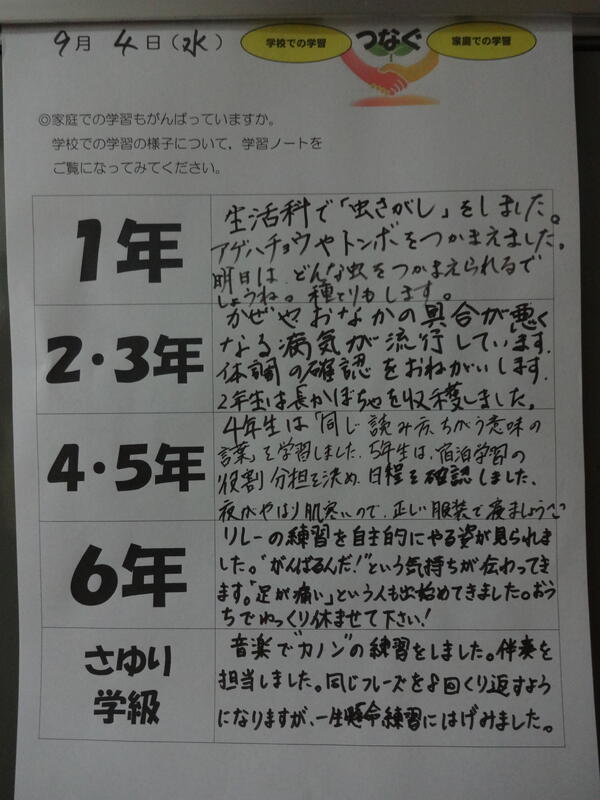 9月 4日(水)
学校での学習
つなぐ
家庭での学習
◎家庭での学習もがんばっていますか。
学校での学習の様子について，学習ノートを
ご覧になってみてください。
1年
生活科で「虫さがし」をしました。
アゲハチョウやトンボをつかまえました。
明日は どんな虫をつかまえられるで
しょうね。種とりもします。
2・3年
かぜや おなかの具合が悪く
なる病気が流行しています。
体調の確認をおねがいします。
2年生は長かぼちゃを収穫しました。
4・5年
4年生は「同じ読み方、ちがう意味の
言葉」を学習しました。5年生は、宿泊学習の
役割分担を決め、日程を確認しました。
夜がやはり肌寒いので、正しい服装で寝ましょう
6年
リレーの練習を自主的にやる姿が見られま
した。"がんばるんだ！"という気持ちが伝わってき
ます。「足が痛い」という人も出始めてきました。おう
ちでゆっくり休ませて下さい！
さゆり
学級
音楽で"カノン"の練習をしました。伴奏を
担当しました。同じフレーズを8回くり返すよう
になりますが、一生懸命練習にはげみました。